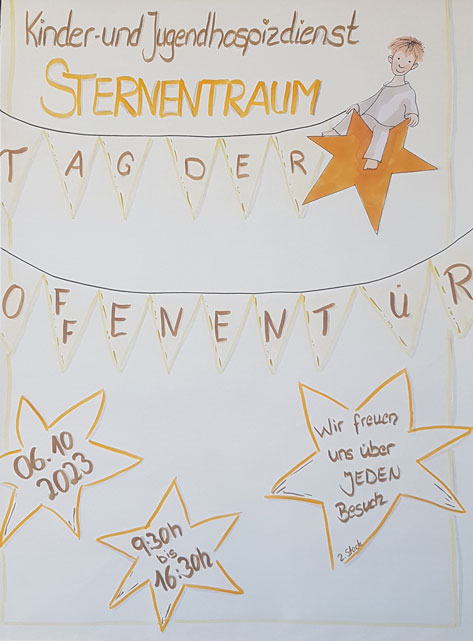 Kinder-und Jugendhospizdienst
STERNENTRAUM
TAG DER
OFFENEN TÜR
06.10
2023
9:30h
bis
16:30h
Wir freuen
uns über
JEDEN
Besuch
2. Stock